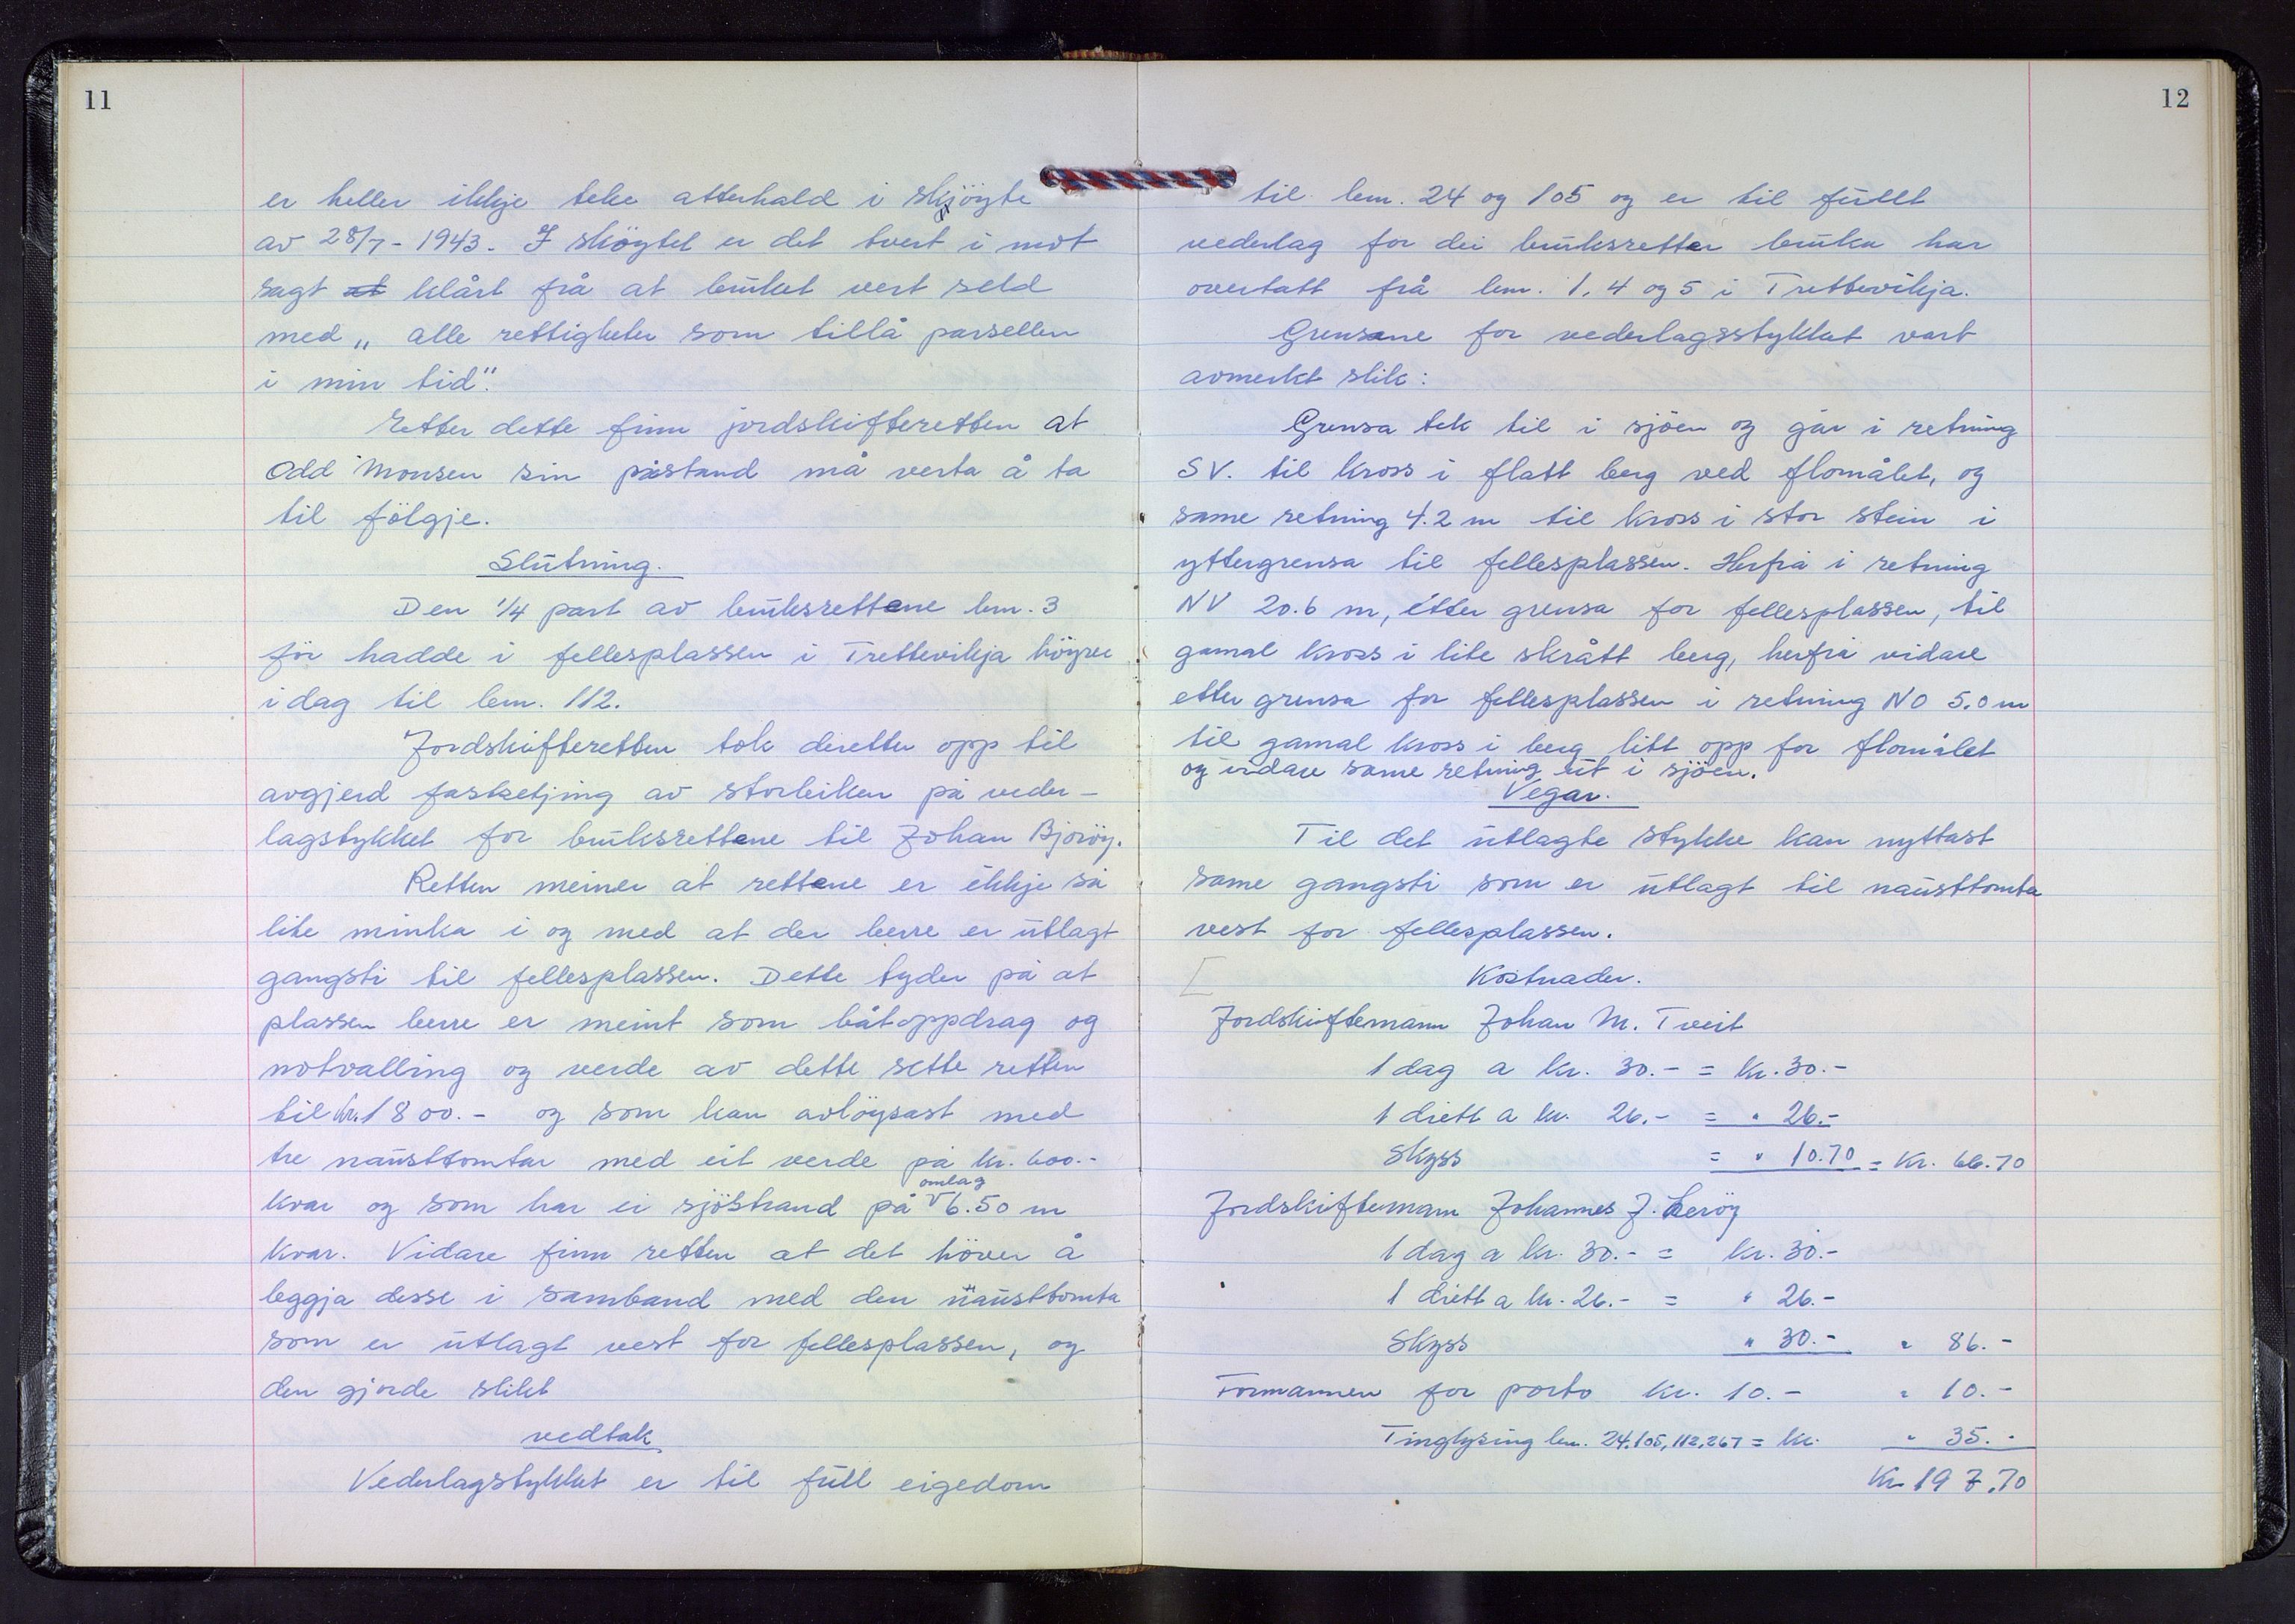 11
er heller ikkje teke atterhald i skjöyte
av 28/7 - 1943. I sköytet er det tvert i mot
sagt at klårt frå at bruket vert seld
med „ alle rettigheter som tillå parsellen
i min tid".
Etter dette finn jordskifteretten at
Odd Monsen sin påstand må verta å ta
til fölgje.
Slutning.
Den 1/4 part av bruksrettane bnr. 3
för hadde i fellesplassen i Trettevikja höyrer
i dag til bnr. 112.
Jordskifteretten tok deretter opp til
avgjerd fastsetjing av storleiken på veder-
lagstykket for bruksrettane til Johan Bjoröy.
Retten meiner at rettane er ikkje så
lite minka i og med at der berre er utlagt
gangsti til fellesplassen. Dette tyder på at
plassen berre er meint som båtoppdrag og
notvalling og verde av dette sette retten
til kr. 1800.- og som kan avlöysast med
tre nausttomtar med eit verde på kr. 600.-
kvar og som har ei sjöstrand på omlag 6.50 m
kvar. Vidare finn retten at det höver å
leggja desse i samband med den nausttomta
som er utlagt vest for fellesplassen, og
den gjorde slikt
vedtak
Vederlagstykket er til full eigedom
12
til bnr. 24 og 105 og er til fullt
vederlag for dei bruksretter bruka har
overtatt frå bnr. 1, 4 og 5 i Trettevikja.
Grensane for vederlagsstykket vart
avmerkt slik:
Grensa tek til i sjöen og går i retning
SV. til kross i flatt berg ved flomålet, og
same retning 4.2 m til kross i stor stein i
yttergrensa til fellesplassen. Herfrå i retning
NV 20.6 m, etter grensa for fellesplassen, til
gamal kross i lite skrått berg, herfrå vidare
etter grensa for fellesplassen i retning NO 5.0 m
til gamal kross i berg litt opp for flomålet
og vidare same retning ut i sjöen.
Vegar.
Til det utlagte stykke kan nyttast
same gangsti som er utlagt til nausttomta
vest for fellesplassen.
[ Kostnader.
Jordskiftemann Johan M. Tveit
1 dag a kr. 30.- = kr. 30.-
1 diett a kr. 26.- = " 26.-
Skyss = " 10.70 = Kr. 66.70
Jordskiftemann Johannes J. Leröy
1 dag a kr. 30.- = kr. 30.-
1 diett a kr. 26.- = " 26.-
Skyss " 30.- " 86.-
Formannen for porto kr. 10.- " 10.-
Tinglysing bnr. 24, 105, 112, 267 = kr. " 35.-
Kr. 197.70